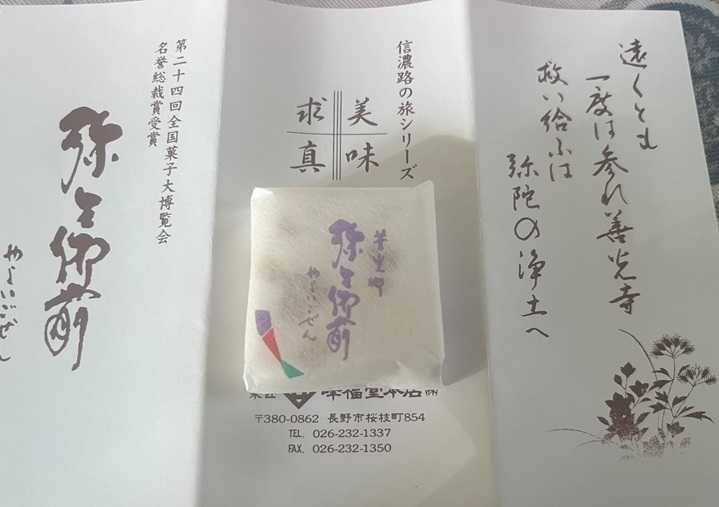 遠くとも
一度は参れ善光寺
救い給ふは
弥陀の浄土へ
信濃路の旅シリーズ
美味
求真
弥生御前
やよいごぜん
福堂本店㈱
〒380-0862 長野市桜枝町854
TEL. 026-232-1337
FAX. 026-232-1350
第二十四回全国菓子大博覧会
名誉総裁賞受賞
弥生御前
やよいごぜん